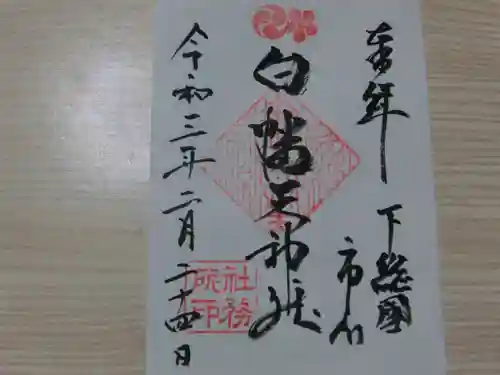 奉拝
下総國
市川
白幡天神社
令和三年二月二十四日
社務
所印